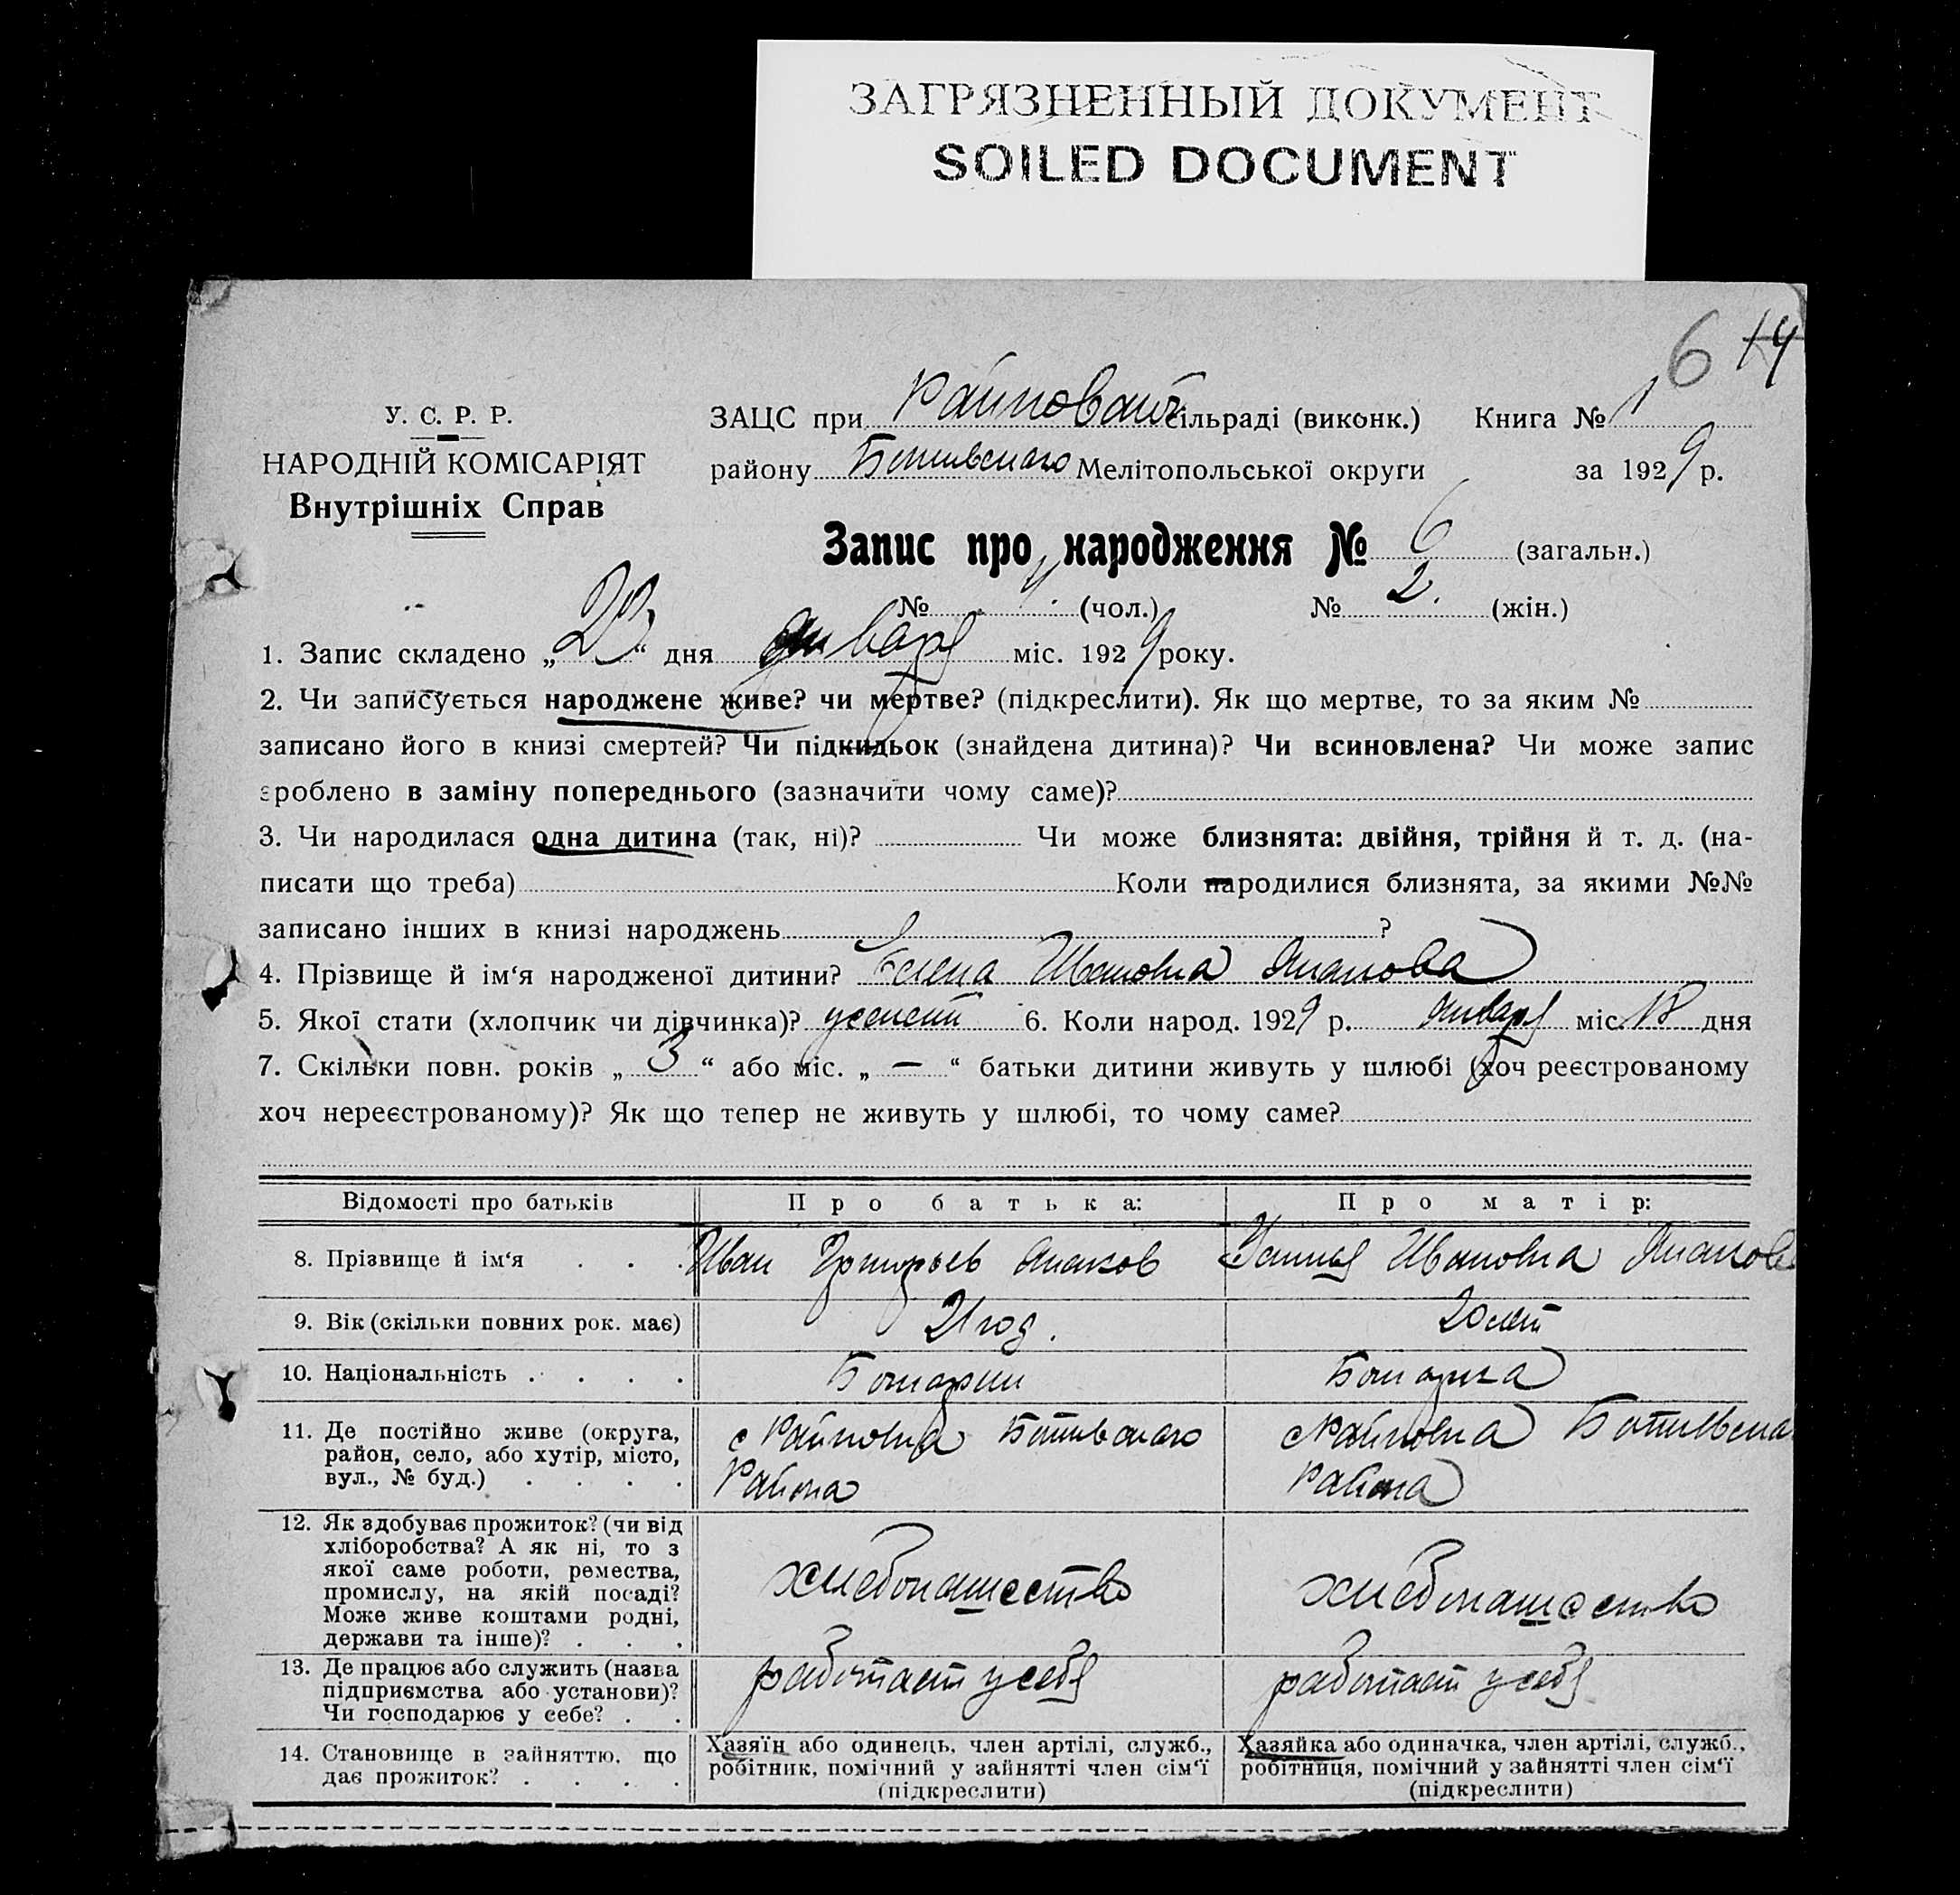 ЗАГРЯЗНЕННЫЙ ДОКУМЕНТ
SOILED DOCUMENT
6 14
У. С. Р. Р.
НАРОДНІЙ КОМІСАРІЯТ
Внутрішніх Справ
ЗАЦС при Райновской сільраді (виконк.) Книга № 1
району Ботивського Мелітопольської округи за 1929 р.
Запис про народження № 6 (загальн.)
№ 4. (чол.) № 2. (жін.)
1. Запис складено „ “ дня января міс. 1929 року.
2. Чи записується народжене живе? чи мертве? (підкреслити). Як що мертве, то за яким №
записано його в книзі смертей? Чи підкидьок (знайдена дитина)? Чи всиновлена? Чи може запис
зроблено в заміну попереднього (зазначити чому саме)?
3. Чи народилася одна дитина (так, ні)? Чи може близнята: двійня, трійня й т. д. (на-
писати що треба) Коли народилися близнята, за якими №№
записано інших в книзі народжень ?
4. Прізвище й ім‘я народженої дитини? Елена Ивановна Янакова
5. Якої стати (хлопчик чи дівчинка)? 6. Коли народ. 1929 р. января міс. 18 дня
7. Скільки повн. років „ 3 “ або міс. „ — “ батьки дитини живуть у шлюбі (хоч реєстрованому
хоч нереєстрованому)? Як що тепер не живуть у шлюбі, то чому саме?
Відомості про батьків Про батька: Про матір:
8. Прізвище й ім‘я . . . Иван Григорьев Янаков Ивановна Янакова
9. Вік (скільки повних рок. має) 21 год. 20 лет
10. Національність . . . . Болгарин Болгарка
11. Де постійно живе (округа, район, село, або хутір, місто, вул., № буд.) . . . . с Райновка Ботивского Района с Райновка Района
12. Як здобуває прожиток? (чи від хліборобства? А як ні, то з якої саме роботи, ремества, промислу, на якій посаді? Може живе коштами родні, держави та інше)? . . . хлебопашество хлебопашество
13. Де працює або служить (назва підприємства або установи)? Чи господарює у себе? . . работает у себя работает у себя
14. Становище в зайняттю, що дає прожиток? . . . . Хазяїн або одинець, член артілі, служб., робітник, помічний у зайнятті член сім‘ї (підкреслити) Хазяйка або одиначка, член артілі, служб., робітниця, помічний у зайнятті член сім‘ї (підкреслити)